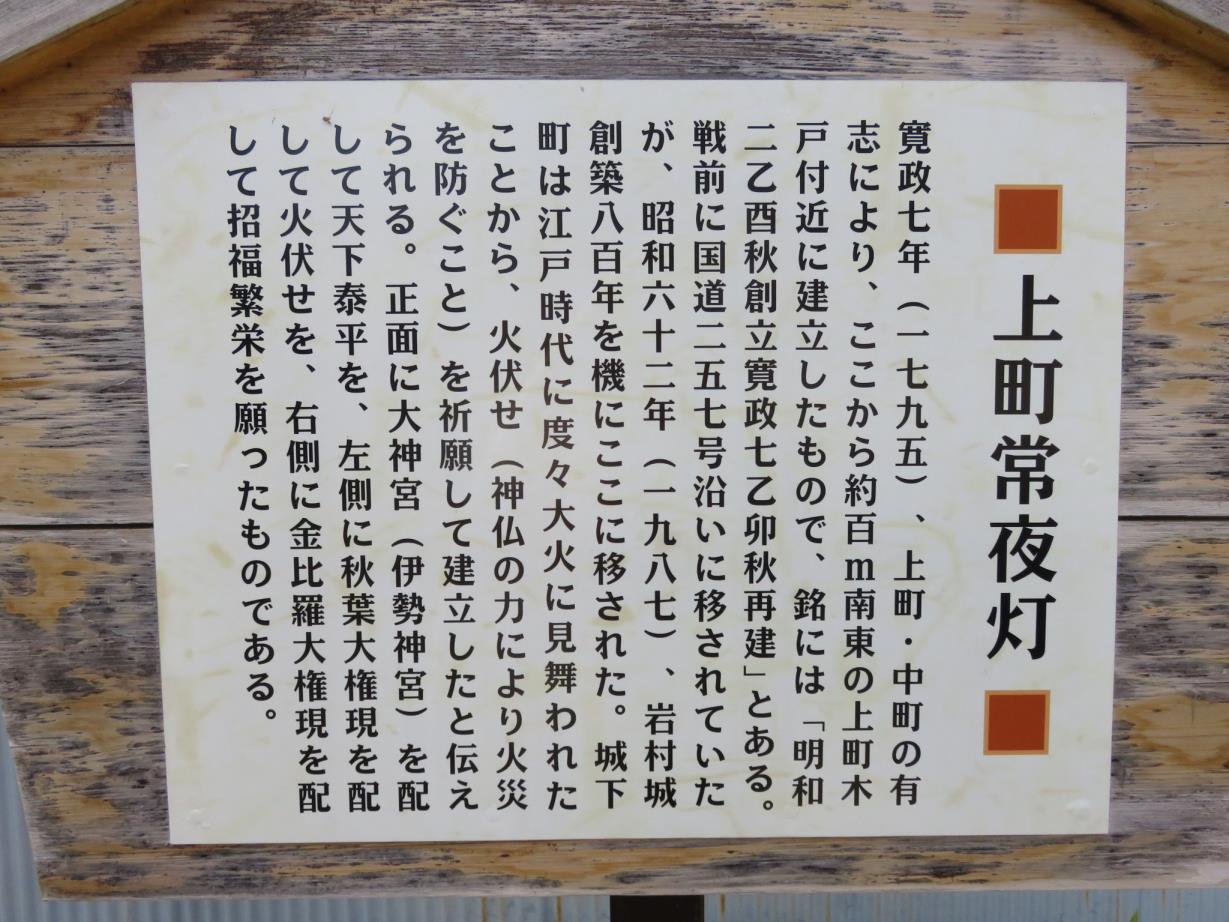 ■上町常夜灯■
寛政七年（一七九五）、上町・中町の有
志により、ここから約百m南東の上町木
戸付近に建立したもので、銘には「明和
二乙酉秋創立寛政七乙卯秋再建」とある。
戦前に国道二五七号沿いに移されていた
が、昭和六十二年（一九八七）、岩村城
創築八百年を機にここに移された。城下
町は江戸時代に度々大火に見舞われた
ことから、火伏せ（神仏の力により火災
を防ぐこと）を祈願して建立したと伝え
られる。正面に大神宮（伊勢神宮）を配
して天下泰平を、左側に秋葉大権現を配
して火伏せを、右側に金比羅大権現を配
して招福繁栄を願ったものである。